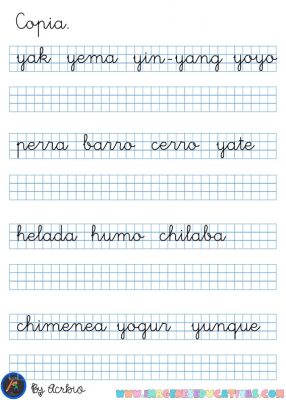 Copia.
yak yema yin-yang yoyo
perra barro cerro yate
helada humo chilaba
chimenea yogur yunque
By Acrbio
www.imageneseducativas.com